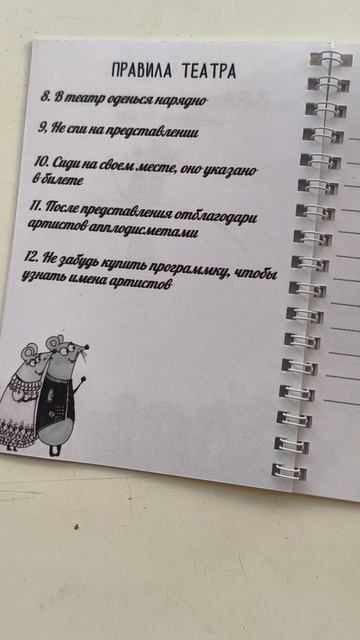 ПРАВИЛА ТЕАТРА
8. В театр оденься нарядно
9, Не спи на представлении
10. Сиди на своем месте, оно указано
в билете
11. После представления отблагодари
артистов апплодисметами
12. Не забудь купить программку, чтобы
узнать имена артистов